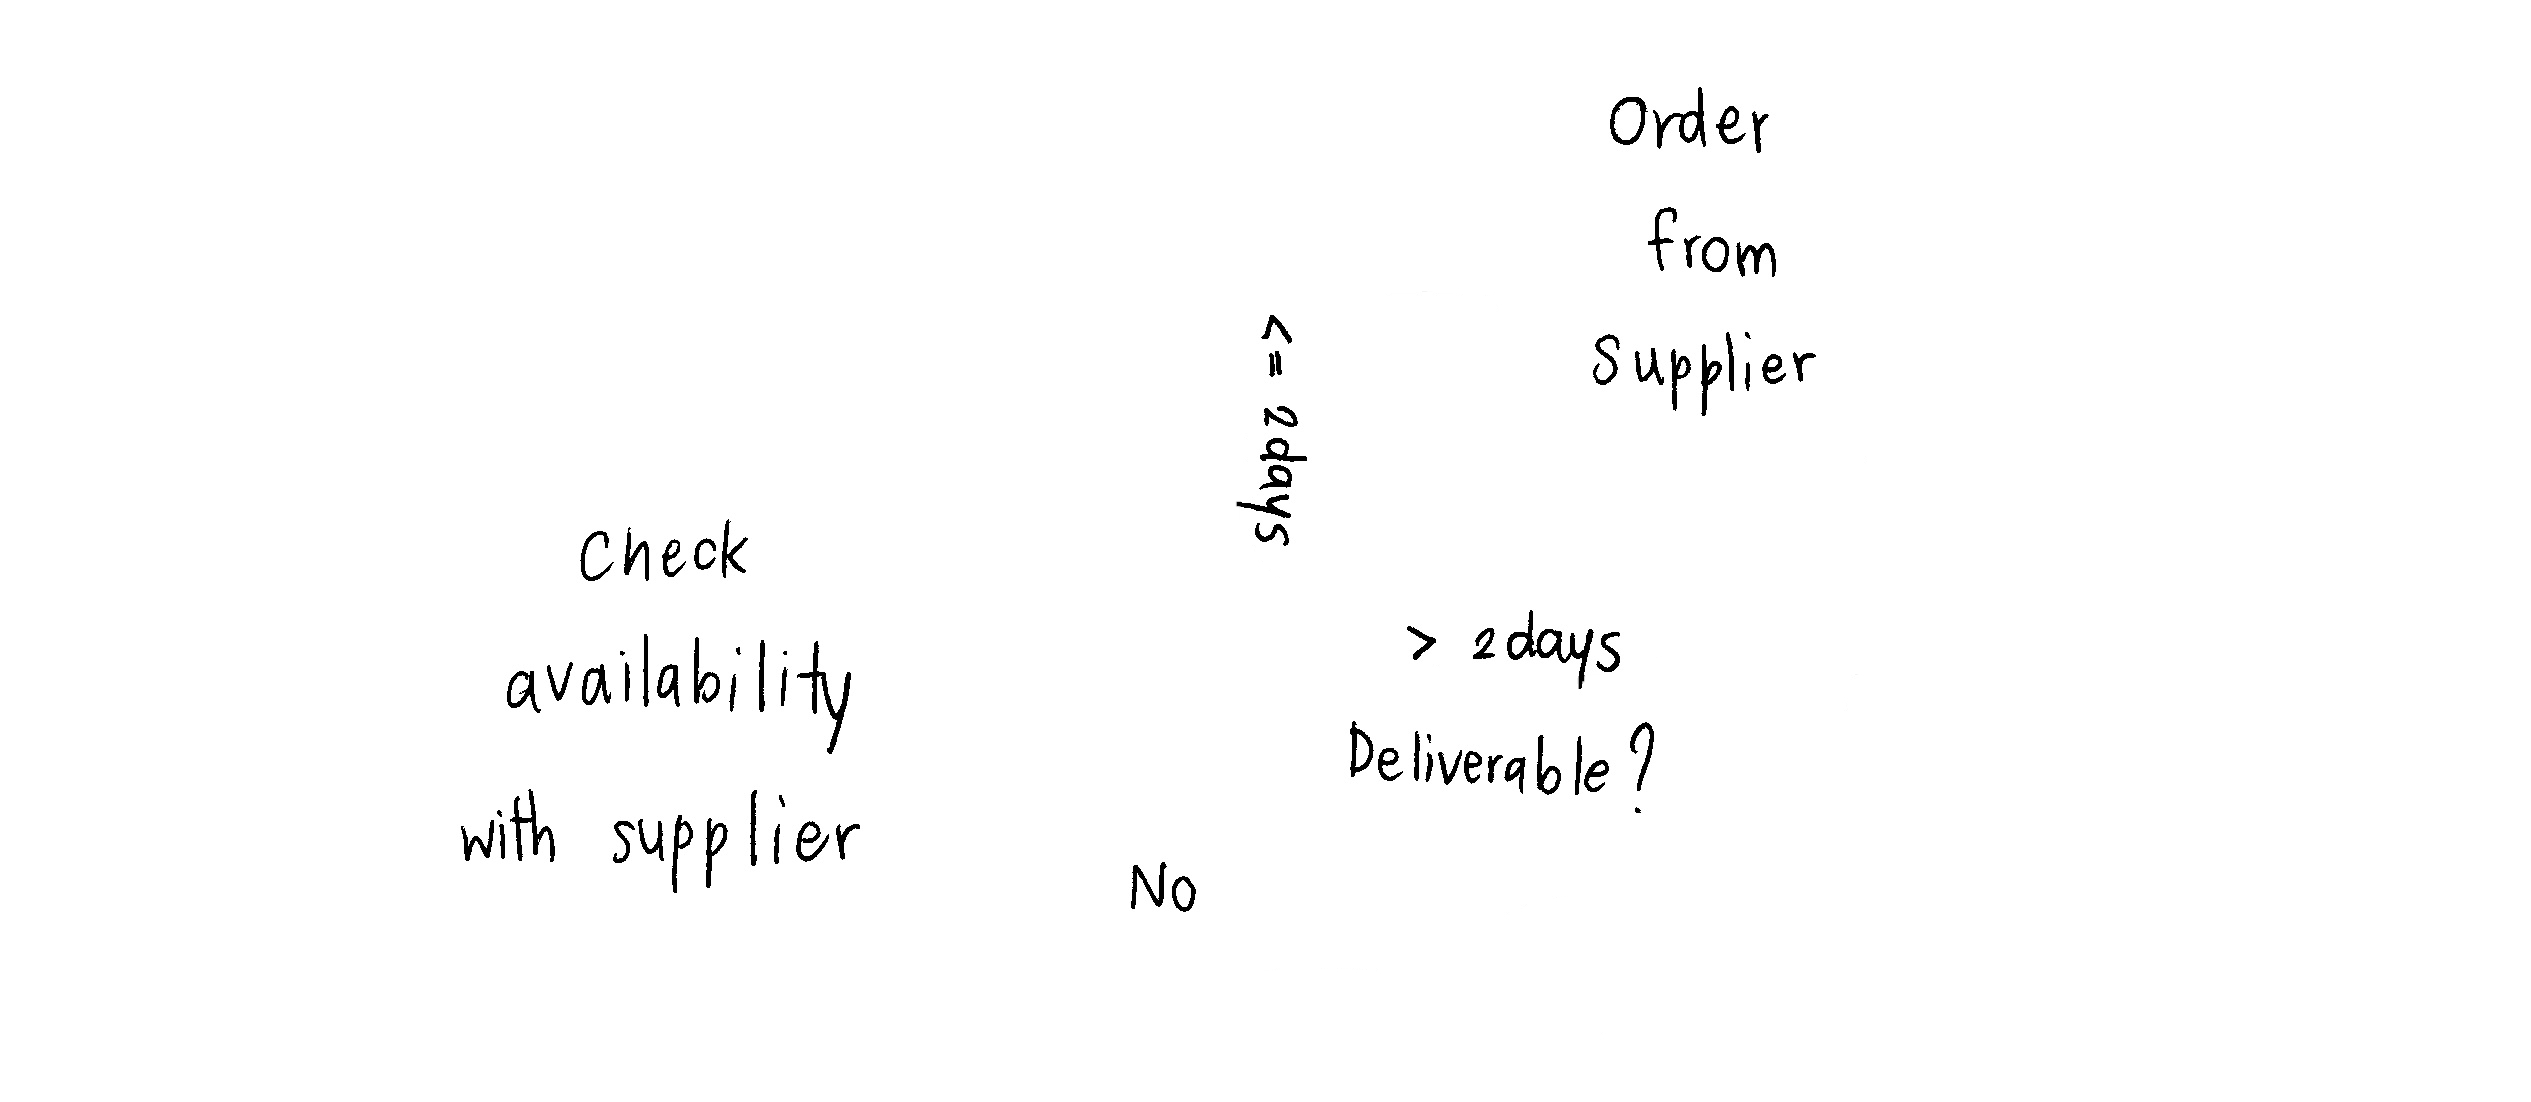 Order
from
Supplier
<= 2days
Check
availability
with supplier
> 2days
Deliverable?
No